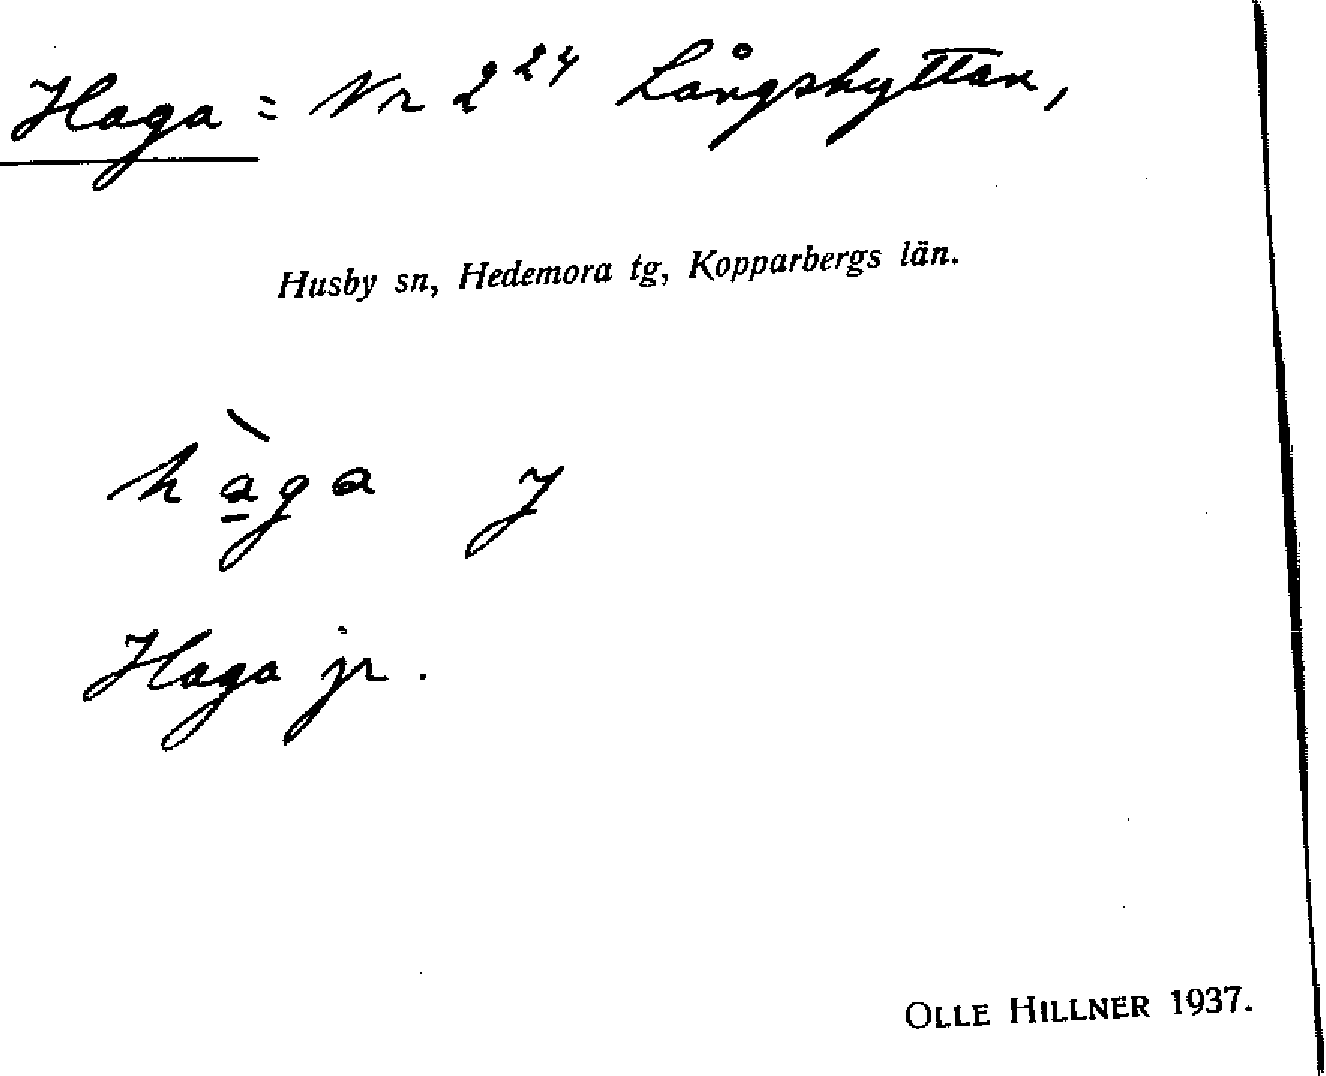 Haga = Nr 2²⁴ Långshyttan,
Husby sn, Hedemora tg, Kopparbergs län.
hàga J
Haga jr.
OLLE HILLNER 1937.